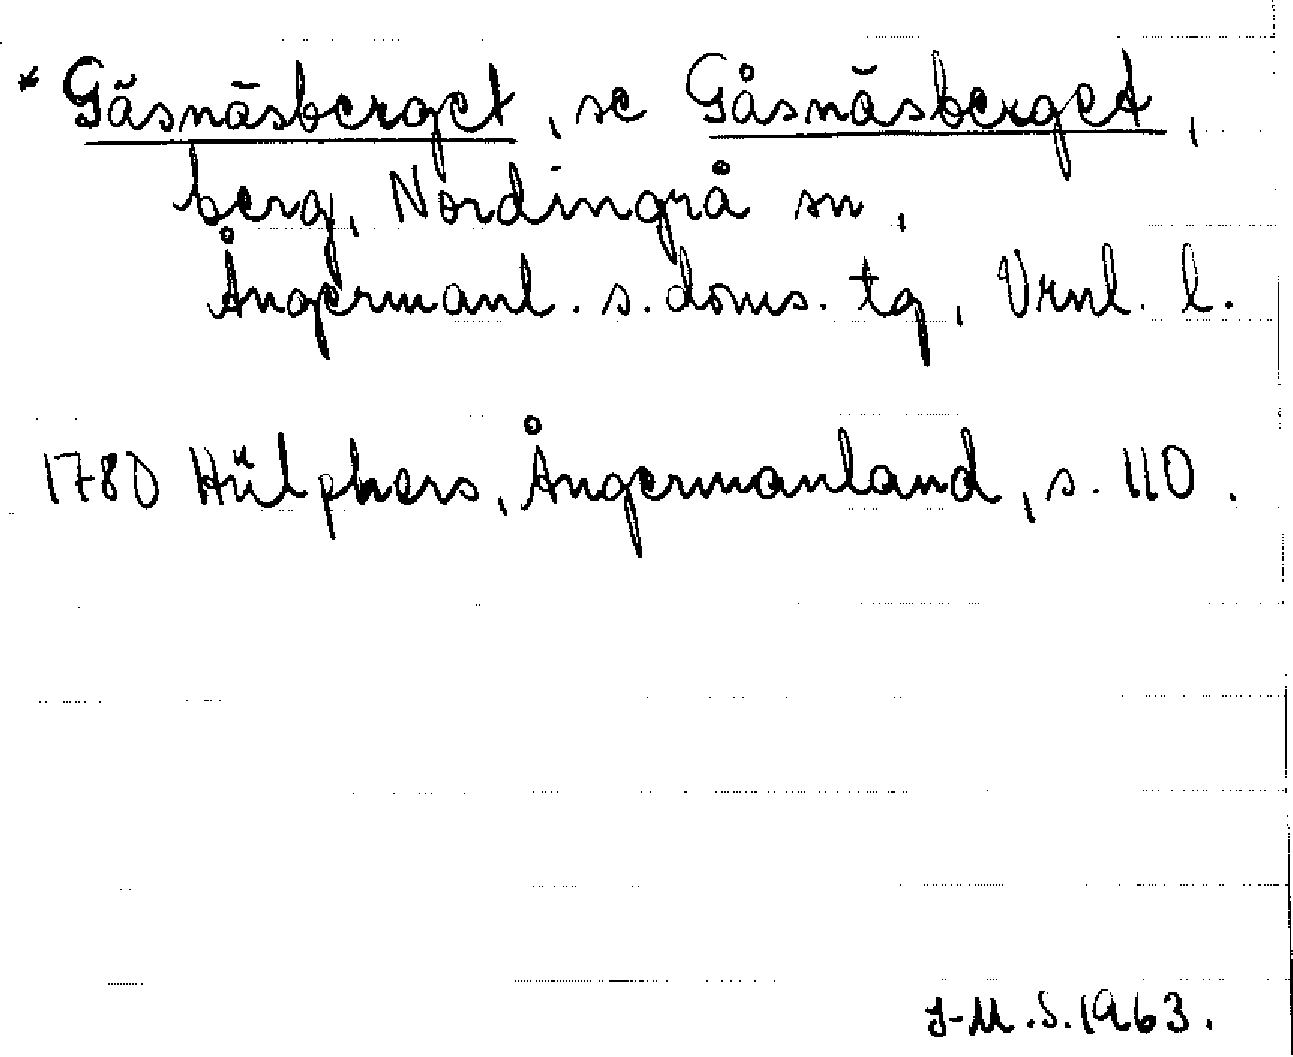 * Gäsnäsberget, se Gåsnäsberget,
berg, Nordingrå sn,
Ångermanl. s. doms. tg, Vrnl. l.
1780 Hülphers, Ångermanland, s. 110.
J-M.S. 1963.